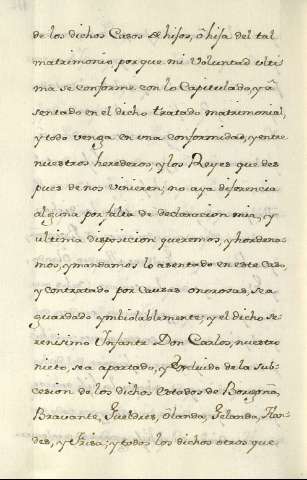 de los dichos Casos de hijos, ô hija del tal
matrimonio, porque mi Voluntad ulti
ma se conforme con lo Capitulado, y â
sentado en el dicho tratado matrimonial,
y todo venga en una conformidad, y entre
nuestros herederos, y los Reyes que des
pues de nos vinieren; no aya diferencia
alguna por falta de declaracion mia, y
ultima disposicion queremos, y hordena
mos, y mandamos lo asentado en este caso,
y contratado por causas onerosas, sea
guardado ymbiolablemente; y el dicho se
renisimo Ynfante Don Carlos, nuestro
nieto, sea apartado, y Excluido de la sub-
cesion de los dichos Estados de Borgoña,
Bravante, Gueldres, Olanda, Gelanda, Flan
des, y Frisa; y todos los dichos otros que